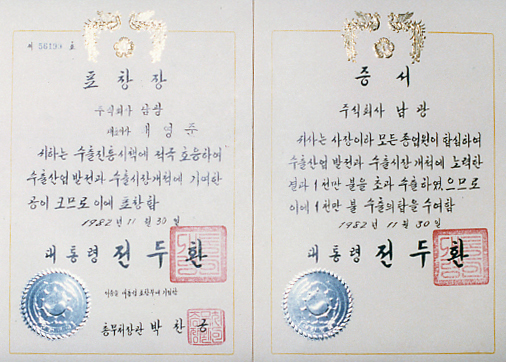 제 56199 호
표창장
주식회사 남광
대표이사
귀하는 수출진흥시책에 적극 호응하여
수출산업 발전과 수출시장개척에 기여한
공이 크므로 이에 표창함
1982년 11월 30일
대통령 전두환
이 증을 대통령 표창부에 기입함
총무처장관 박찬긍
증서
주식회사 남광
귀사는 사장이하 모든 종업원이 합심하여
수출산업 발전과 수출시장 개척에 노력한
결과 1천만 불을 초과 수출하였으므로
이에 1천만 불 수출의 탑을 수여함
1982년 11월 30일
대통령 전두환